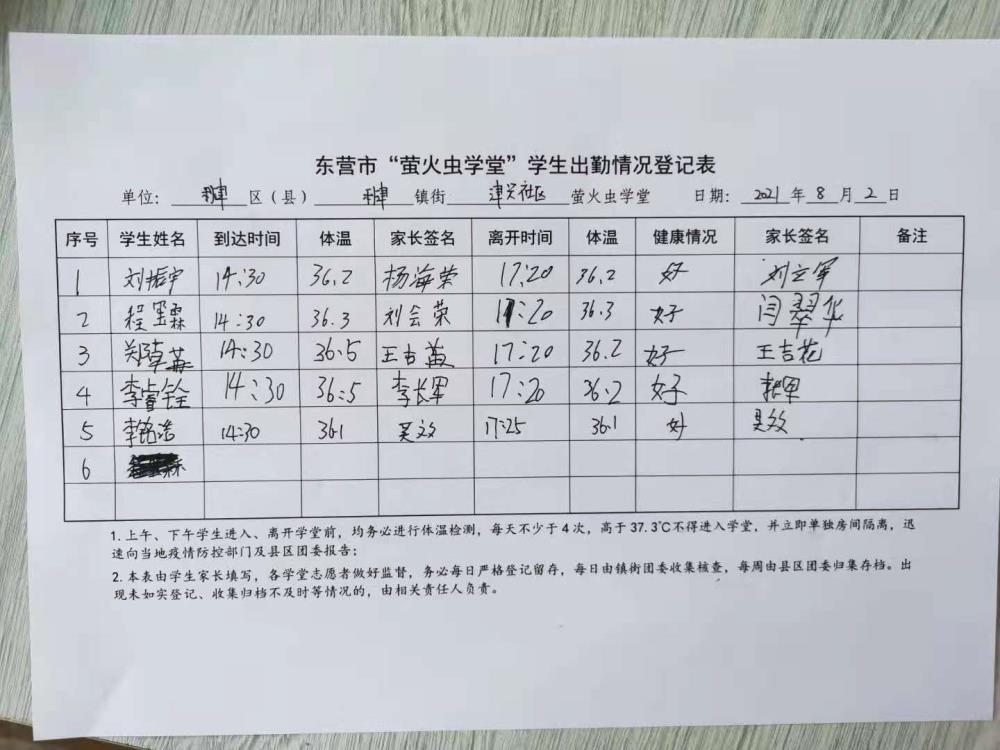 东营市“萤火虫学堂”学生出勤情况登记表
单位：利津区（县）利津镇街津兴社区萤火虫学堂 日期：2021年8月2日
序号 学生姓名 到达时间 体温 家长签名 离开时间 体温 健康情况 家长签名 备注
1 刘振宇 14:30 36.2 杨海荣 17:20 36.2 好 刘立军
2 程 霖 14:30 36.3 刘会荣 17:20 36.3 好 闫翠华
3 郑 14:30 36.5 王吉 17:20 36.2 好 王吉花
4 李睿铨 14:30 36:5 李长军 17:20 36.2 好
5 李铭浩 14:30 36.1 吴 17:25 36.1 好 吴
6
1.上午、下午学生进入、离开学堂前，均务必进行体温检测，每天不少于4次，高于37.3℃不得进入学堂，并立即单独房间隔离，迅
速向当地疫情防控部门及县区团委报告；
2.本表由学生家长填写，各学堂志愿者做好监督，务必每日严格登记留存，每日由镇街团委收集核查，每周由县区团委归集存档。出
现未如实登记、收集归档不及时等情况的，由相关责任人负责。